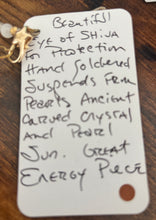 Beautiful
Eye of Shiva
for Protection
Hand Soldered
Suspends From
Pearls Ancient
Carved Crystal
and Pearl
Sun. Great
Energy Piece